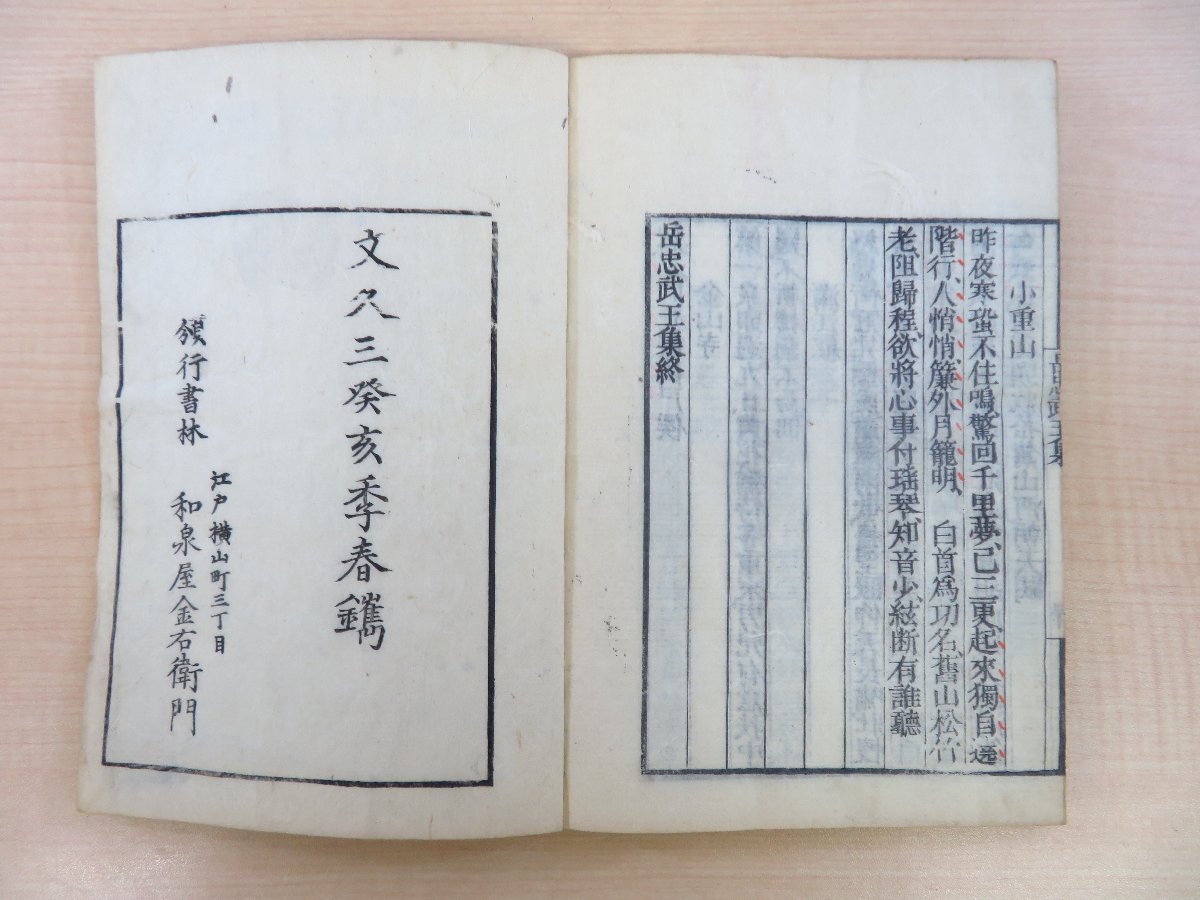 小重山
昨夜寒蛩不住鳴、驚回千里夢、已三更、起來獨自遶
階行、人悄悄、簾外月籠明、 白首爲功名、舊山松竹
老、阻歸程、欲將心事付瑤琴、知音少、絃斷有誰聽
岳忠武王集終
岳忠武王集
文久三癸亥季春鐫
發行書林
江戸横山町三丁目
和泉屋金右衛門